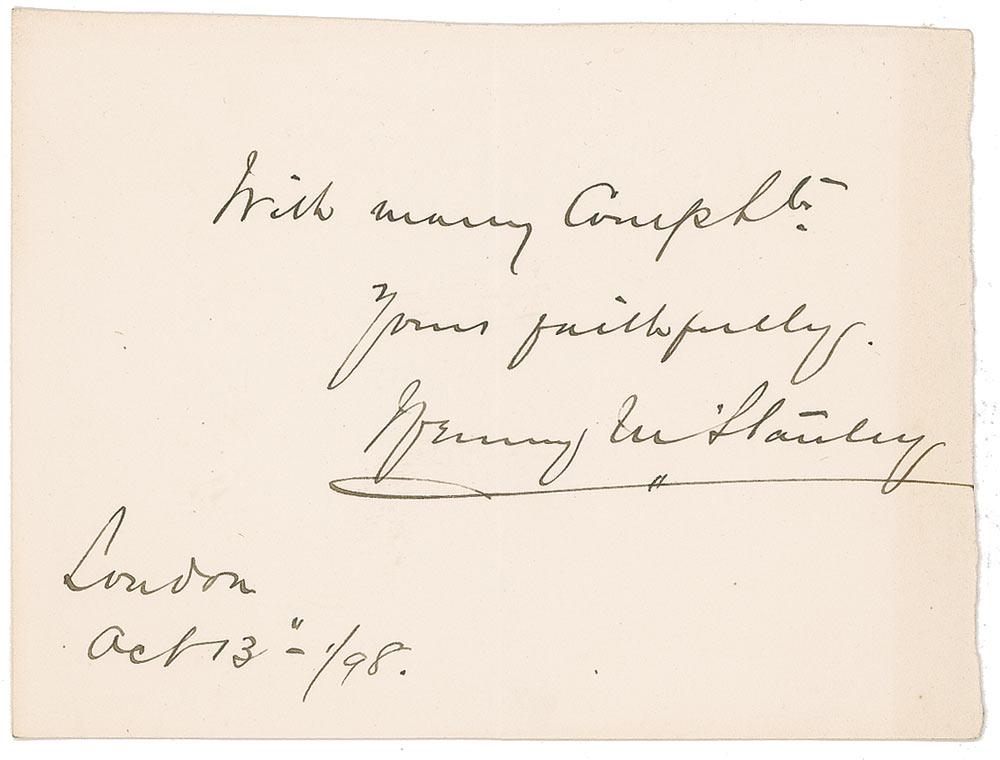 With many Complts.
Yours faithfully.
Henry M Stanley
London
Oct 13" - /98.